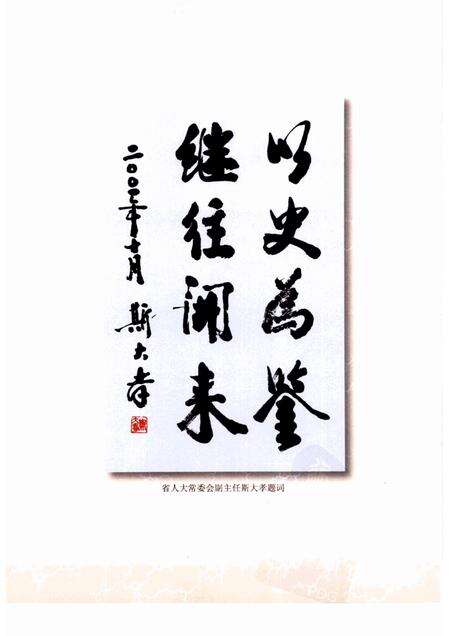 以史为鉴
继往开来
二〇〇三年十月 斯大孝
省人大常委会副主任斯大孝题词